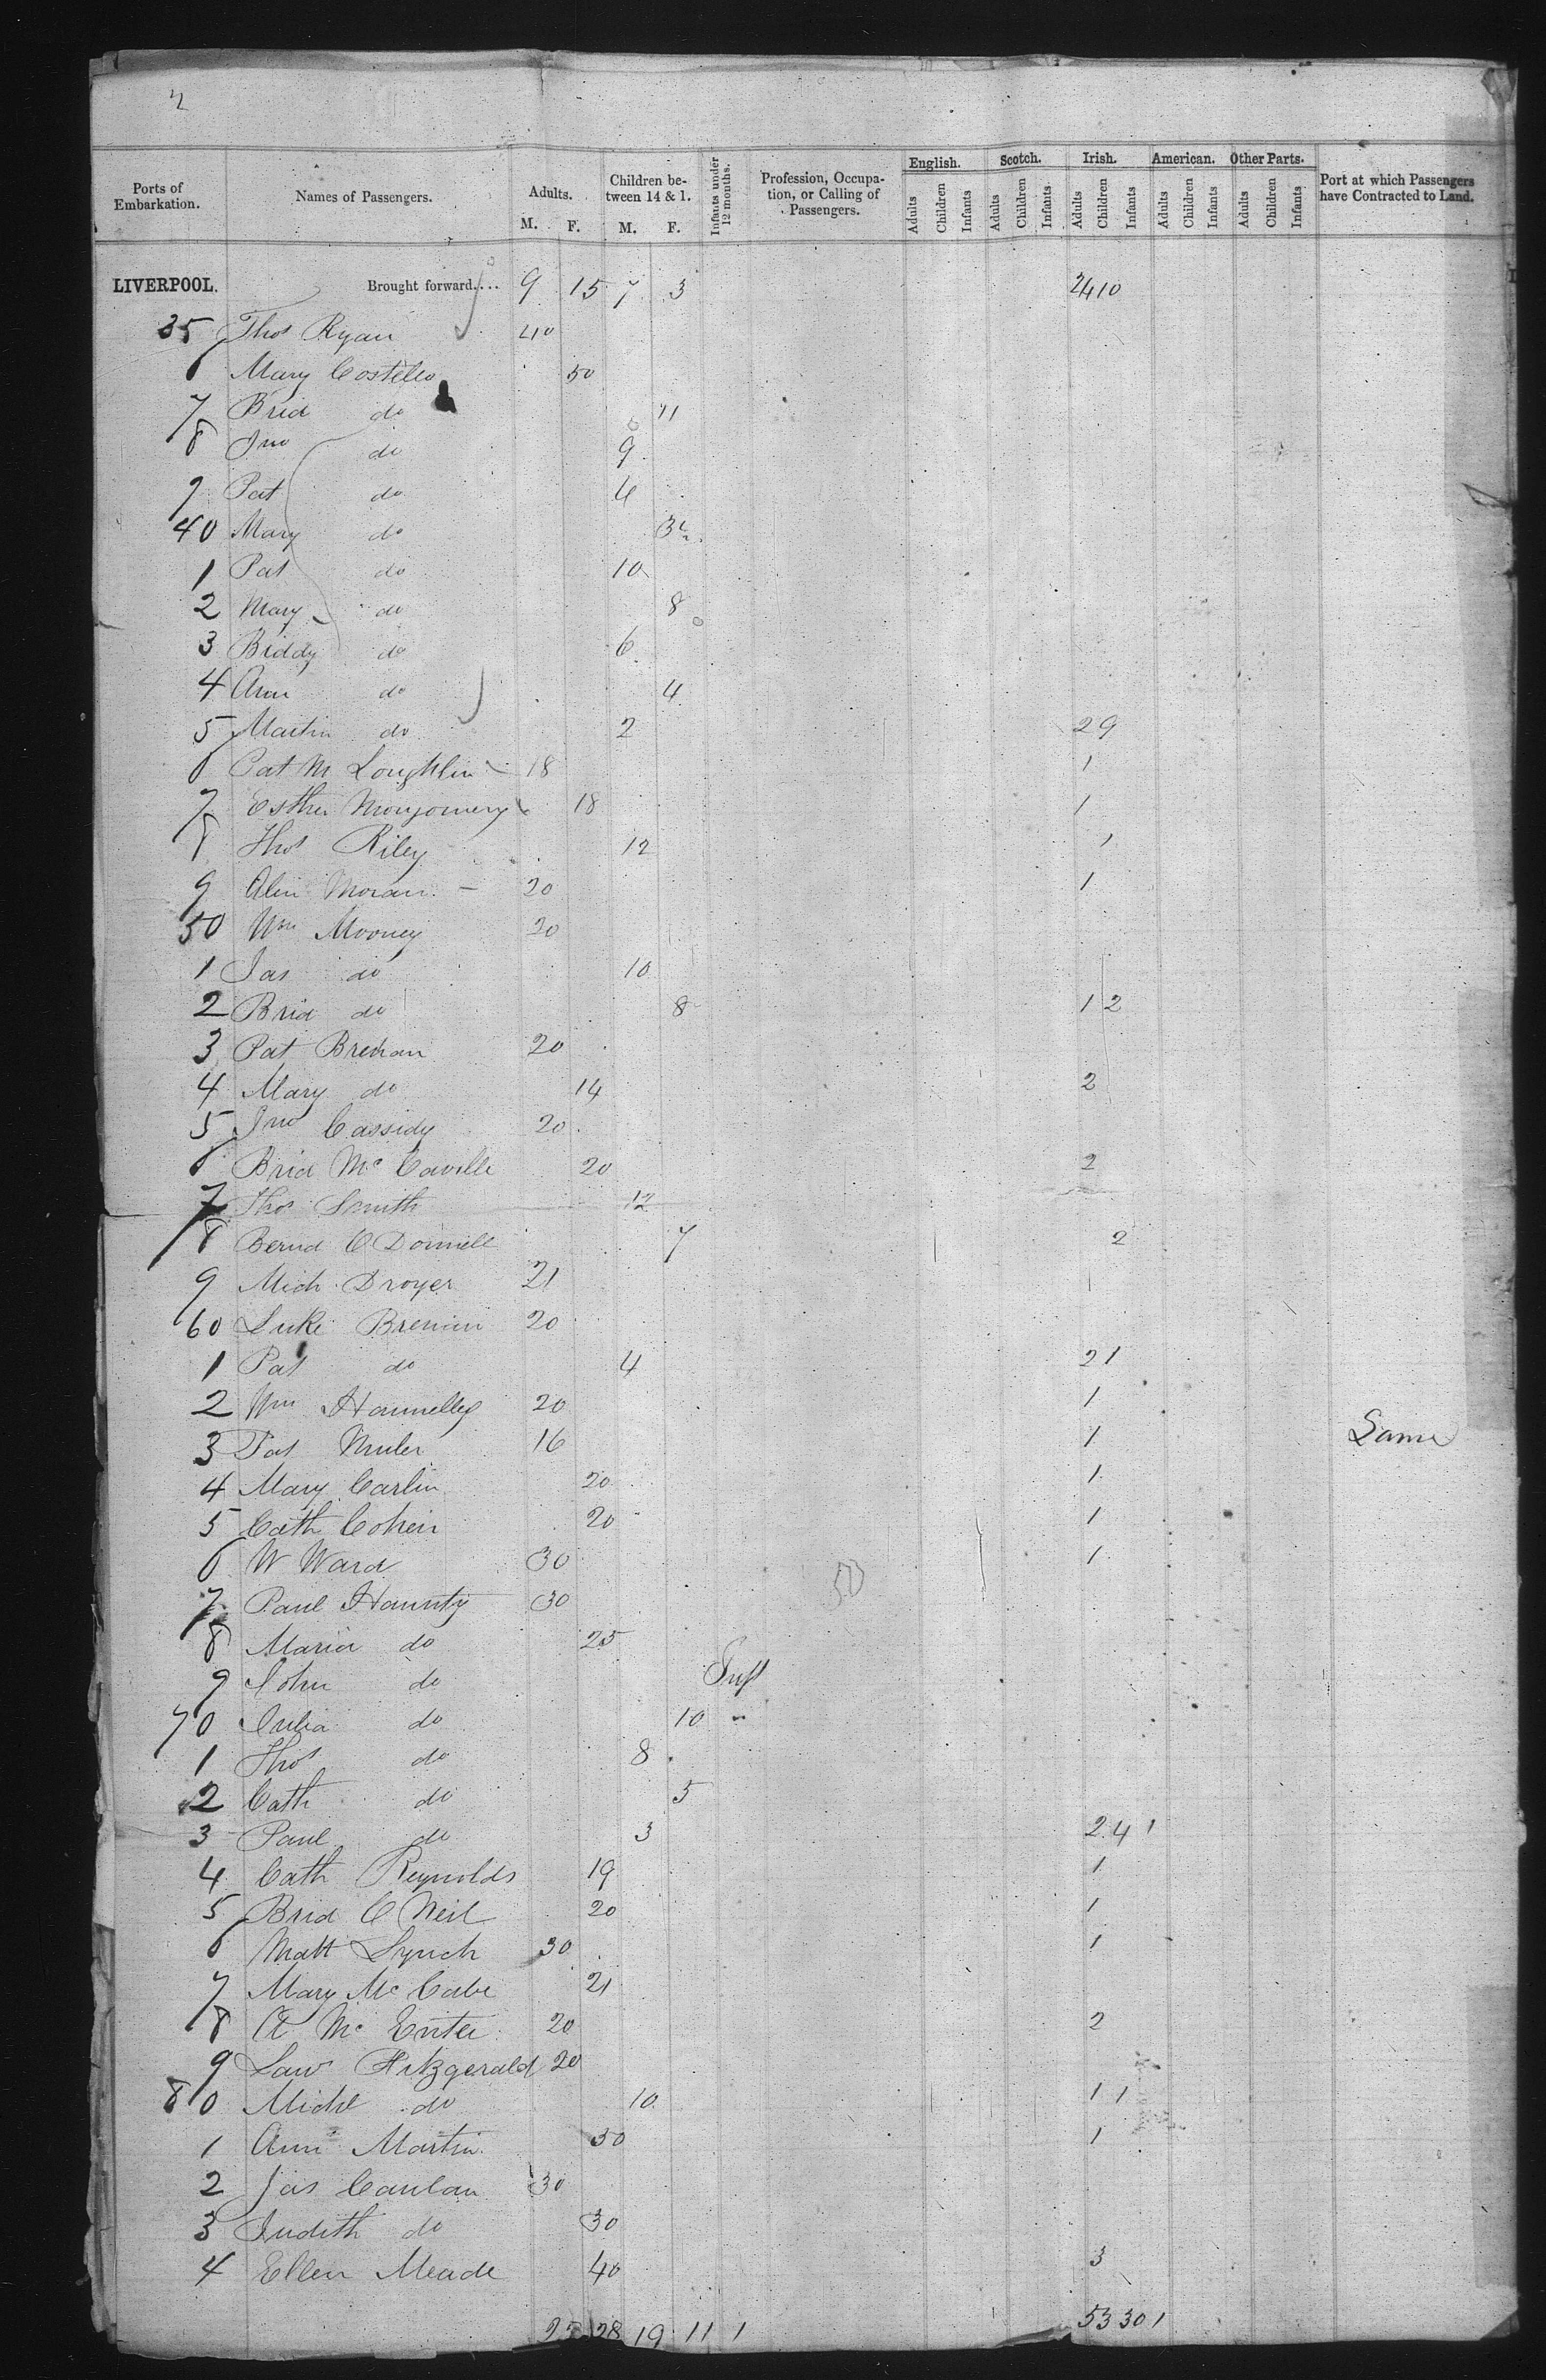 2
Ports of Embarkation. Names of Passengers. Adults. M. F. Children between 14 & 1. M. F. Infants under 12 months. Profession, Occupation, or Calling of Passengers. English. Adults Children Infants Scotch. Adults Children Infants. Irish. Adults Children Infants American. Adults Children Infants Other Parts. Adults Children Infants Port at which Passengers have Contracted to Land.
LIVERPOOL. Brought forward.... 9 15 7 3 24 10
35 Thos Ryan 40
6 Mary Costello 50
7 Brid do 11
8 Jno do 9
9 Pat do 4
40 Mary do
1 Pat do 10
2 Mary do 8
3 Biddy do 6
4 Ann do 4
5 Martin do 2 2 9
6 Pat Mc Loughlin 18 1
7 Esther Montgomery 18 1
8 Thos Riley 12 1
9 Moran 20 1
50 Wm Mooney 20
1 Jas do 10
2 Brid do 8 1 2
3 Pat Brehan 20
4 Mary do 14 2
5 Jno Cassidy 20
6 Brid Mc Caville 20 2
7 Thos Smith 12
8 Bernd O Donnell 7 2
9 Mich Droyer 21
60 Luke Brennin 20
1 Pat do 4 2 1
2 Wm Hannelly 20 1
3 Pat 16 1 Same
4 Mary Carlin 20 1
5 Cath Cohen 20 1
6 W Ward 30 1
7 Paul Haunty 30 50
8 Maria do 25
9 John do Inft
70 Julia do 10 "
1 Thos do 8
2 Cath do 5
3 Paul do 3 2 4 1
4 Cath Reynolds 19 1
5 Brid O Neil 20 1
6 Matt Lynch 30 1
7 Mary Mc Cabe 21
8 A Mc Entee 20 2
9 Law Fitzgerald 20
80 Michl do 10 1 1
1 Ann Martin 30 1
2 Jas Canlan 30
3 Judith do 30
4 Ellen Meade 40 3
25 28 19 11 1 53 30 1